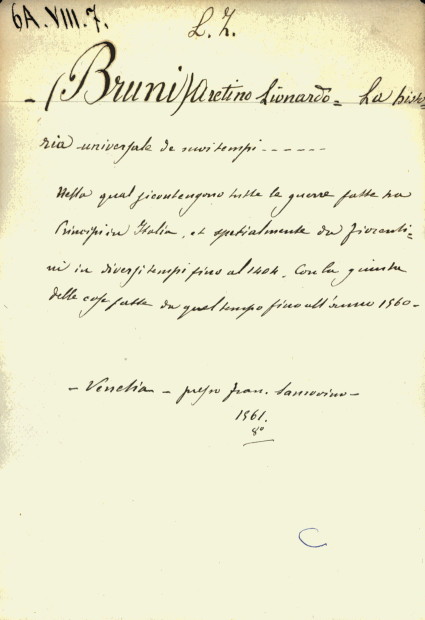 6A.VIII.7.
L. Z.
- (Bruni) Aretino Lionardo = La histo-
ria universale de suoi tempi - - - - - -
Nella qual si contengono tutte le guerre fatte tra
Principi in Italia, et spetialmente da Fiorenti-
ni in diversi tempi fino al 1404. Con la giunta
delle cose fatte da quel tempo fino all'anno 1560 -
- Venetia - presso Fran. Sansovino -
1561.
8°
C